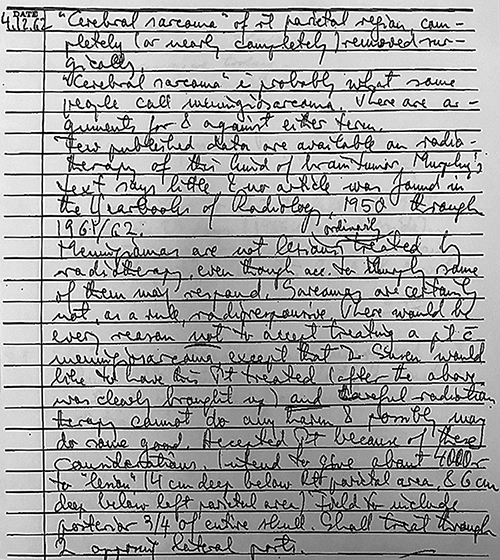 DATE
4.12.62 "Cerebral sarcoma" of rt parietal region, com-
pletely (or nearly completely) removed sur-
gically.
"Cerebral sarcoma" is probably what some
people call meningiosarcoma. There are ar-
guments for & against either term.
Few published data are available on radio-
therapy of this kind of brain tumor. Murphy's
text says little & no article was found in
the Yearbooks of Radiology, 1950 through
1961/62.
ordinarily
Meningiomas are not lesions treated by
radiotherapy, even though acc. to Murphy some
of them may respond. Sarcomas are certainly
not, as a rule, radioresponsive. There would be
every reason not to accept treating a pt c̄
meningiosarcoma except that Dr would
like to have this Pt treated (after the above
was clearly brought up) and careful radiation
therapy cannot do any harm & possibly may
do some good. Accepted Pt because of these
considerations. Intend to give about 4000r
to "lesion" (4 cm deep below rt parietal area, & 6 cm
deep below left parietal area). Field to include
posterior 3/4 of entire skull. Shall treat through
2 opposing lateral ports.